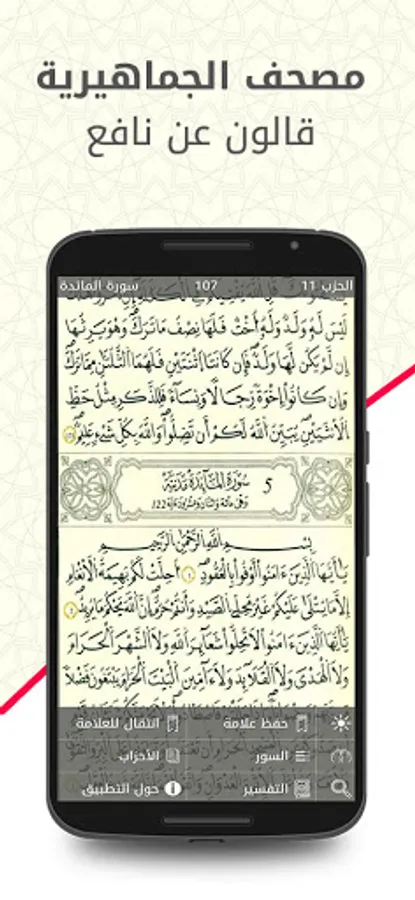 مصحف الجماهيرية
قالون عن نافع
الحزب 11
107
سورة المائدة
لَيْسَ لَهُ وَلَدٌ وَلَهُ أُخْتٌ فَلَهَا نِصْفُ مَا تَرَكَ وَهُوَ يَرِثُهَا
إِن لَّمْ يَكُن لَّهَا وَلَدٌ فَإِن كَانَتَا اَثْنَتَيْنِ فَلَهُمَا اَلثُّلُثَانِ مِمَّا تَرَكَ
وَإِن كَانُوا إِخْوَةً رِّجَالًا وَنِسَاءً فَلِلذَّكَرِ مِثْلُ حَظِّ
اِلُانثَيَيْنِ يُبَيِّنُ اُللَّهُ لَكُمْ أَن تَضِلُّوا وَاللَّهُ بِكُلِّ شَيْءٍ عَلِيمٌ
5 سُورَةُ الْمَائِدَةِ مَدَنِيَّة
وهي مائة وثنتان وعشرون آية 122
بِسْمِ اِللَّهِ اِلرَّحْمَنِ اِلرَّحِيمِ
يَا أَيُّهَا اَلذِينَ ءَامَنُوا أَوْفُوا بِالْعُقُودِ ١ أُحِلَّتْ لَكُم بَهِيمَةُ اُلْأَنْعَامِ
إِلَّا مَا يُتْلَى عَلَيْكُمْ غَيْرَ مُحِلِّي اِلصَّيْدِ وَأَنتُمْ حُرُمٌ إِنَّ اَللَّهَ يَحْكُمُ مَا يُرِيدُ
يَا أَيُّهَا اَلذِينَ ءَامَنُوا لَا تُحِلُّوا شَعَائِرَ اَللَّهِ وَلَا اَلشَّهْرَ اَلْحَرَامَ
وَلَا اَلْهَدْيَ وَلَا اَلْقَلَائِدَ وَلَا ءَامِّينَ اَلْبَيْتَ اَلْحَرَامَ يَبْتَغُونَ فَضْلًا
حفظ علامة
انتقال للعلامة
السور
الأحزاب
التفسير
حول التطبيق